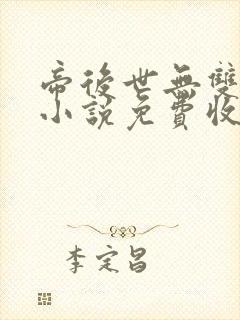 帝後世無雙
小說免費收
李定昌